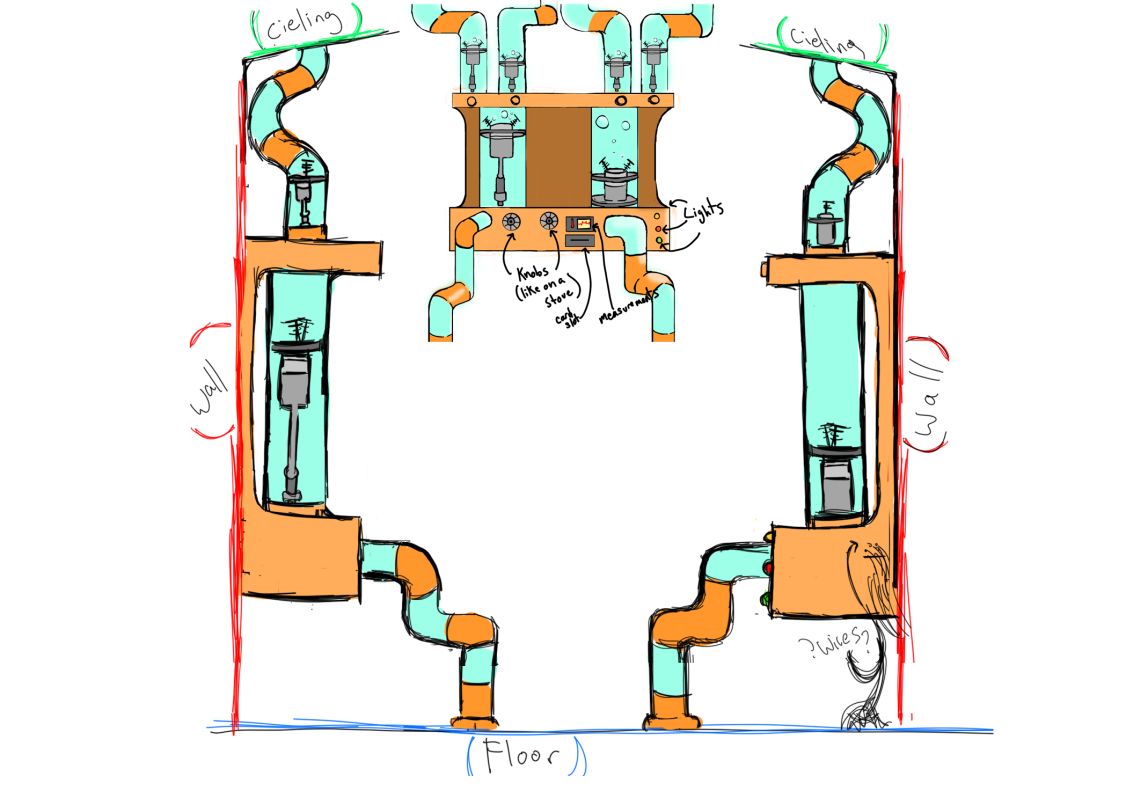 Cieling
Cieling
Lights
Knobs
(like on a
stove)
card
slot
measurements
(wall)
(Wall)
?Wires?
(Floor)